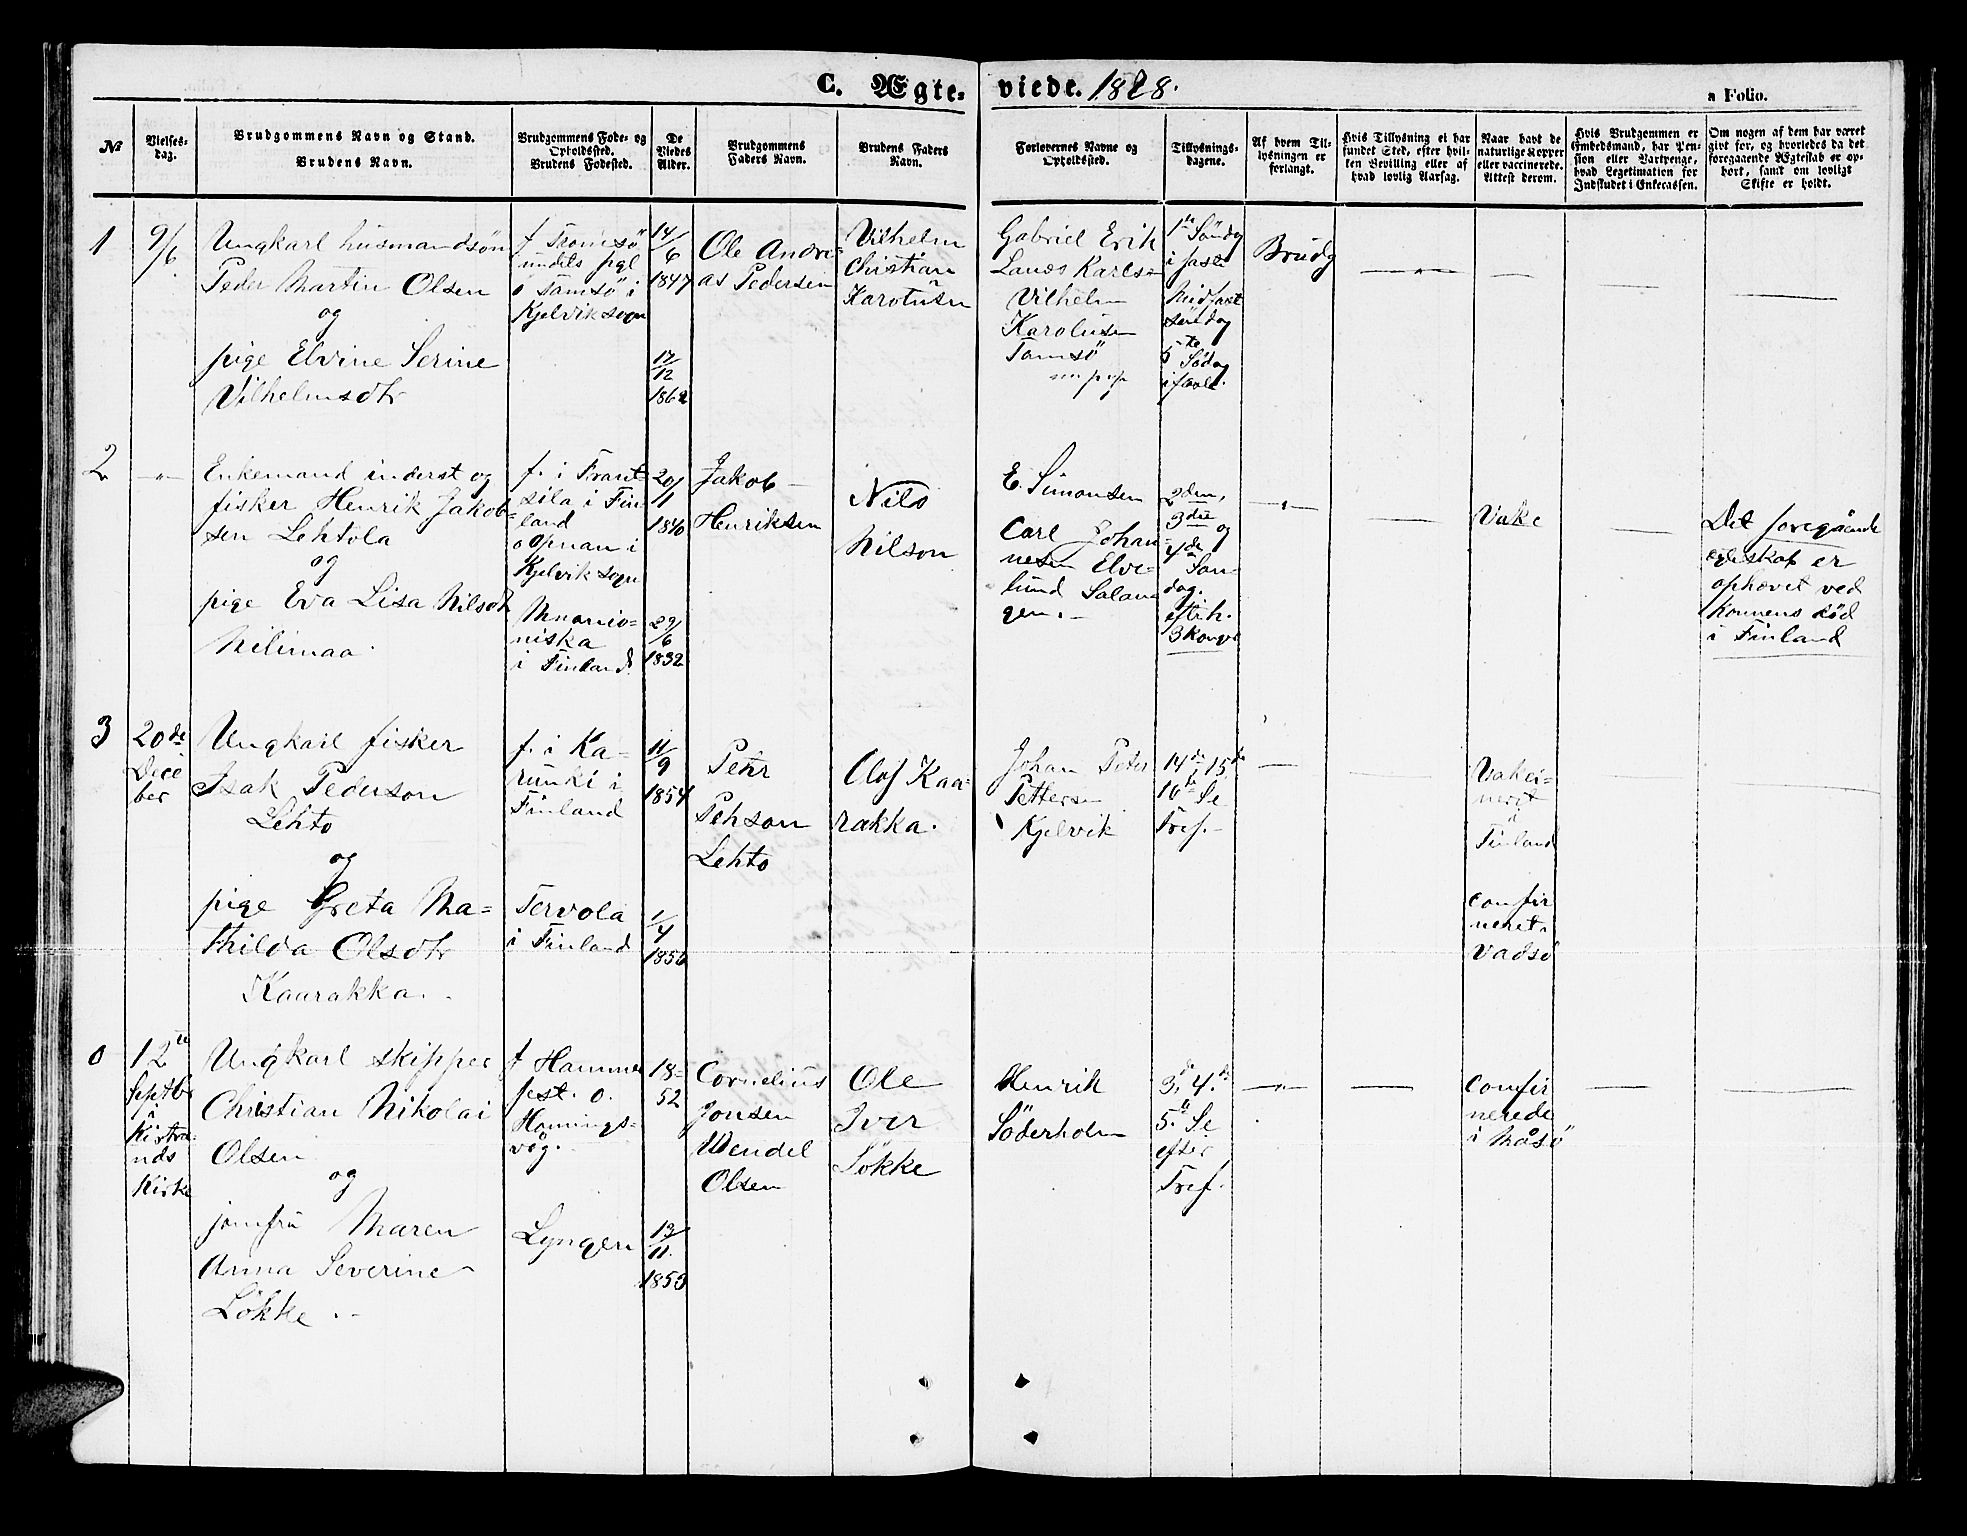 C. Ægte- viede. 1878.
a Folio.
№
Vielses-
dag.
Brudgommens Navn og Stand.
Brudens Navn.
Brudgommens Føde- og
Opholdssted.
Brudens Fødested.
De
Viedes
Alder.
Brudgommens
Faders Navn.
Brudens Faders
Navn.
Forlovernes Navne og
Opholdssted.
Tillysnings-
dagene.
Af hvem Til-
lysningen er
forlangt.
Hvis Tillysning ei har
fundet Sted, efter hvil-
ken Bevilling eller af
hvad lovlig Aarsag.
Naar havt de
naturlige Kopper
eller vaccinerede.
Attest derom.
Hvis Brudgommen er
Embedsmand, har Pen-
sion eller Vartpenge,
hvad Legitimation for
Indskudet i Enkecassen.
Om nogen af dem har været
givt før, og hvorledes da det
foregaaende Ægteskab er op-
hørt, samt om lovligt
Skifte er holdt.
1
9/6
Ungkarl husmandsøn
Peder Martin Olsen
og
pige Elvine Serine
Vilhelmsdtr
f Tromsö
undets pgl
o Tamsö i
Kjelvik sogn
14/6
1847
17/12
1862
Ole Andre-
as Pedersen
Vilhelm
Christian
Karolusen
Gabriel Erik
Lanes Karls
Vilhelm
Karolusen
Tamsö
1te Söndg
i faste
Midfaste
söndag
5te Södag
i faste.
Brudg
— " —
—
—
—
2
— " —
Enkemand inderst og
fisker Henrik Jakob-
sen Lehtola
og
pige Eva Lisa Nilsdtr
Nilimaa
f. i Frant-
sila i Fin
land
o Opnan i
Kjelvik sogn
Muonio-
niska
i Finland
20/1
1840
29/6
1832
Jakob
Henriksen
Nils
Nilson
E. Simonsen
Carl Johan
nesen Elve-
lund Salan
gen. —
2den,
3die og
4de Sön-
dag.
eft. h.
3 konger
— " —
—
Vake
—
Det foregående
egteskab er
ophævet ved
konens död
i Finland
3
20de
Dece
ber
Ungkarl fisker
Isak Pederson
Lehto
og
pige Greta Ma-
thilda Olsdtr
Kaarakka.
f. i Ka-
runki i
Finland
Tervola
i Finland
11/9
1854
1/4
1856
Petter
Pehson
Lehto
Olof Kaa-
rakka.
Johan Peter
Petterse
Kjelvik
14de 15de
16de Se
Tref. —
—
—
Vakci-
neret
i
Finland
confir
meret
Vadsö
0
12te
Septbr
i
Kistra-
nds
Kirke
Ungkarl skipper
Christian Nikolai
Olsen
og
jomfru Maren
Anna Severine
Lökke
f Hammer
fest. o.
Honnings-
våg.
Lyngen
18-
52
13/11
1853
Cornelius
Jonsen
Wendel
Olsen
Ole
Iver
Lökke
Henrik
Söderholm
3de 4de
5te Se
efter
Tref.
— " —
—
confir
merede
i Måsö
—
—